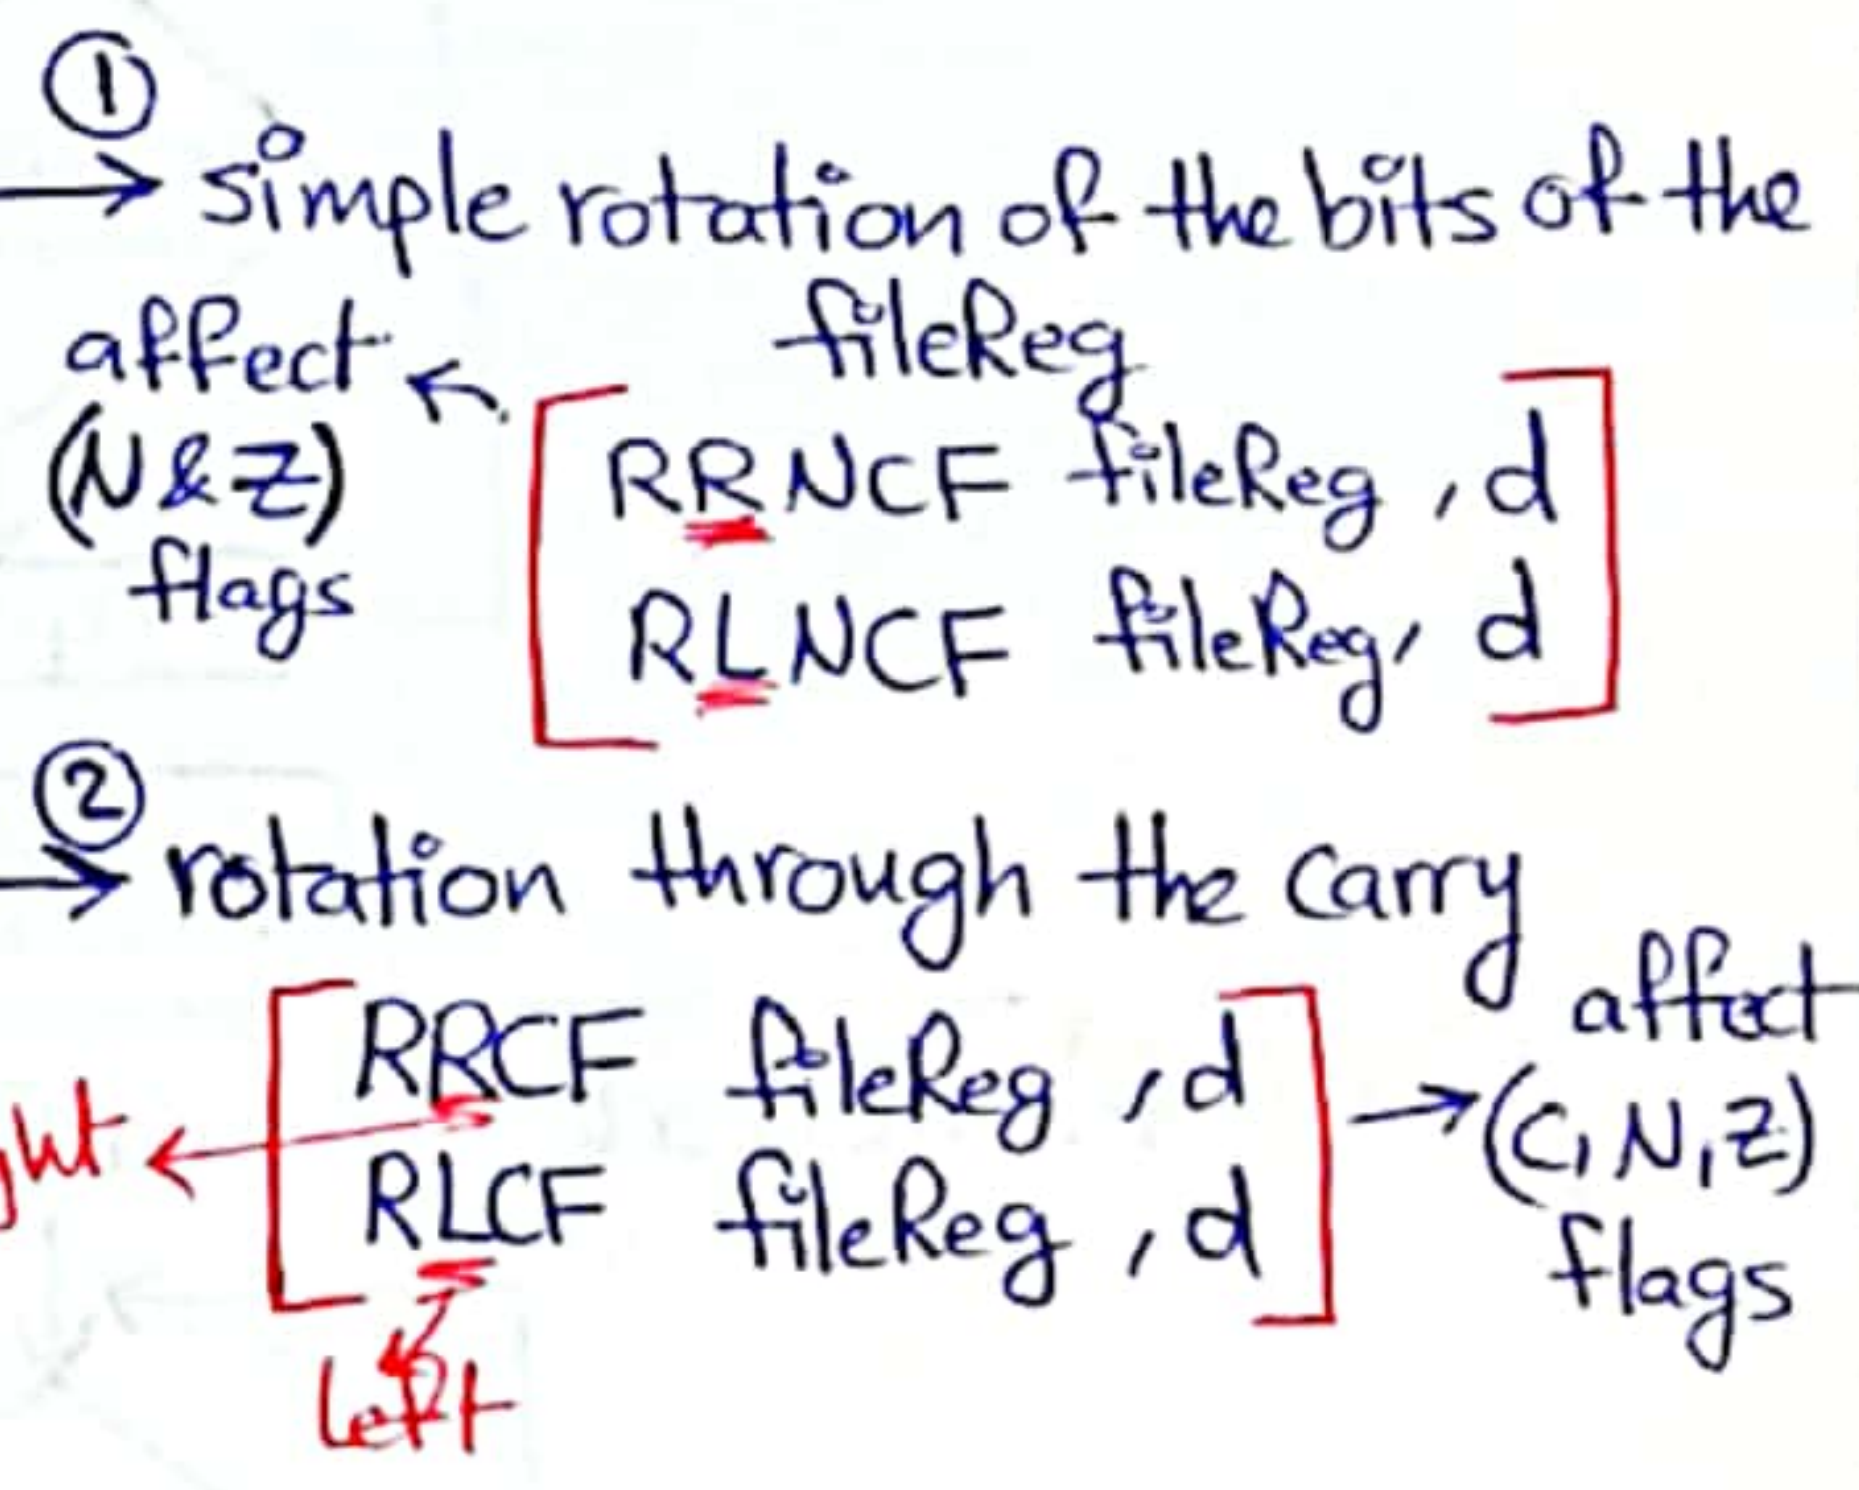 ①
→ simple rotation of the bits of the
fileReg
affect
(N & Z)
flags
RRNCF fileReg , d
RLNCF fileReg, d
②
→ rotation through the carry
RRCF fileReg , d
RLCF fileReg , d
affect
(C, N, Z)
flags
ght
left